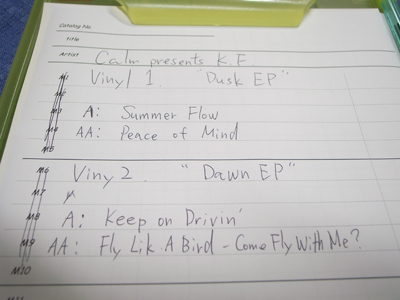 Catalog No.
Title
Artist Calm presents K.F.
M1 Vinyl 1. "Dusk EP"
M2
M3 A: Summer Flow
M4 AA: Peace of Mind
M5
M6 Viny 2. "Dawn EP"
M7
M8 A: Keep on Drivin'
M9 AA: Fly Lik A Bird - Come Fly With Me?
M10